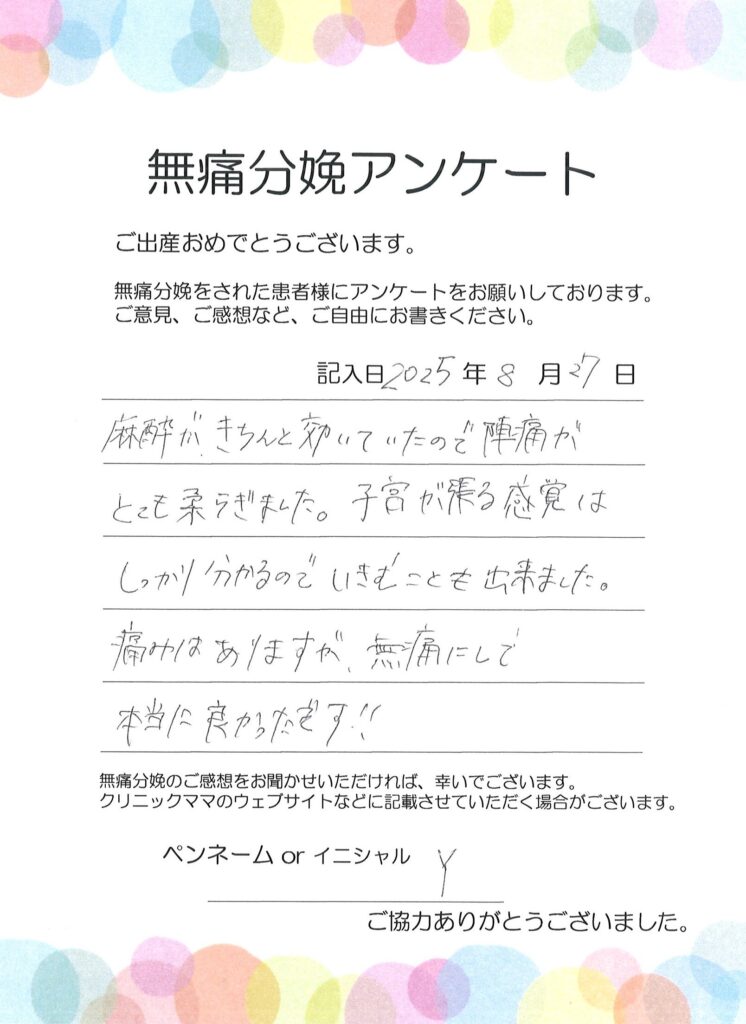 無痛分娩アンケート
ご出産おめでとうございます。
無痛分娩をされた患者様にアンケートをお願いしております。
ご意見、ご感想など、ご自由にお書きください。
記入日2025年8月27日
麻酔が、きちんと効いていたので陣痛が
とても柔らぎました。子宮が張る感覚は
しっかり分かるのでいきむことも出来ました。
痛みはありますが、無痛にして
本当に良かったです!!
無痛分娩のご感想をお聞かせいただければ、幸いでございます。
クリニックママのウェブサイトなどに記載させていただく場合がございます。
ペンネーム or イニシャル Y
ご協力ありがとうございました。